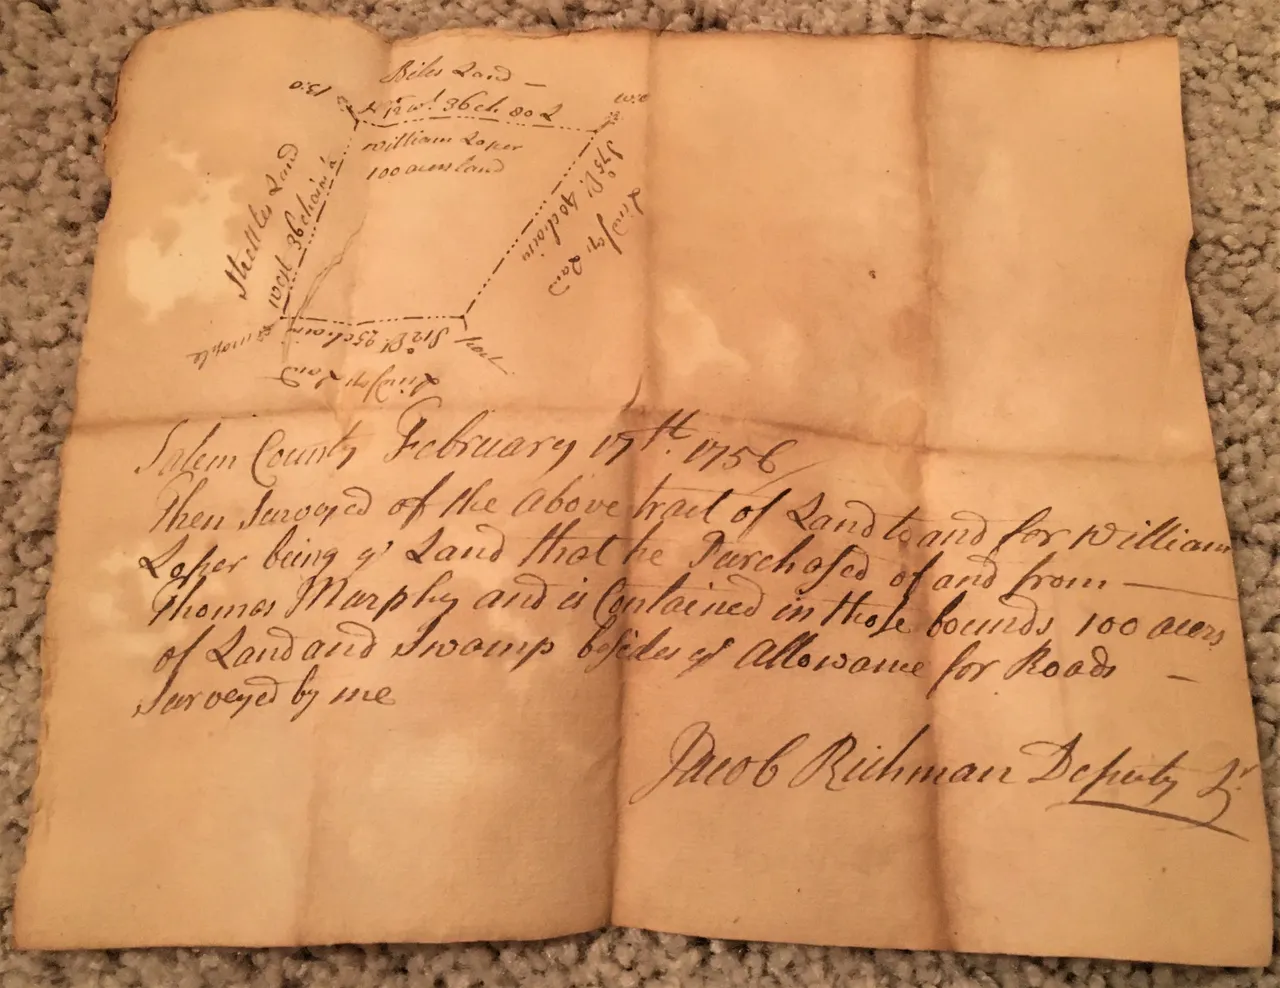 Biles Land —
N 12 W. 36 ch. 80 L
William Loper
100 acers land
B:O
W:O
Land
36 chains
S 75 E. 40 chains
Land
maple
S 12 E. 25 chains
Land
Salem County February 17th. 1756
Then Surveyed of the above tract of Land to and for William
Loper being ye Land that he Purchased of and from —
Thomas Murphey and is Contained in those bounds 100 acers
of Land and Swamp besides ye Allowance for Roads —
Surveyed by me
Jacob Richman Deputy Sr